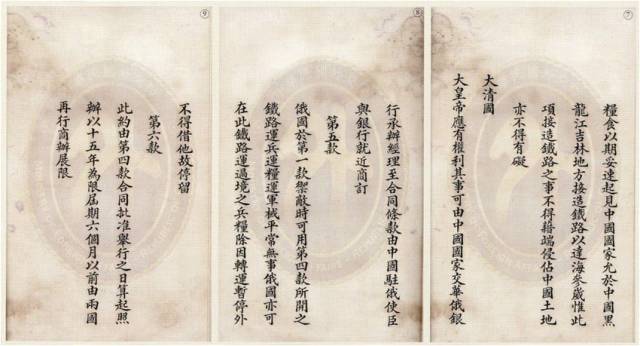 ⑦
糧食以期妥速起見中國國家允於中國黑
龍江吉林地方接造鐵路以達海參崴惟此
項接造鐵路之事不得藉端侵佔中國土地
亦不得有礙
大清國
大皇帝應有權利其事可由中國國家交華俄銀
⑧
行承辦經理至合同條款由中國駐俄使臣
與銀行就近商訂
第五款
俄國於第一款禦敵時可用第四款所開之
鐵路運兵運糧運軍械平常無事俄國亦可
在此鐵路運過境之兵糧除因轉運暫停外
⑨
不得借他故停留
第六款
此約由第四款合同批准舉行之日算起照
辦以十五年為限屆期六個月以前由兩國
再行商辦展限